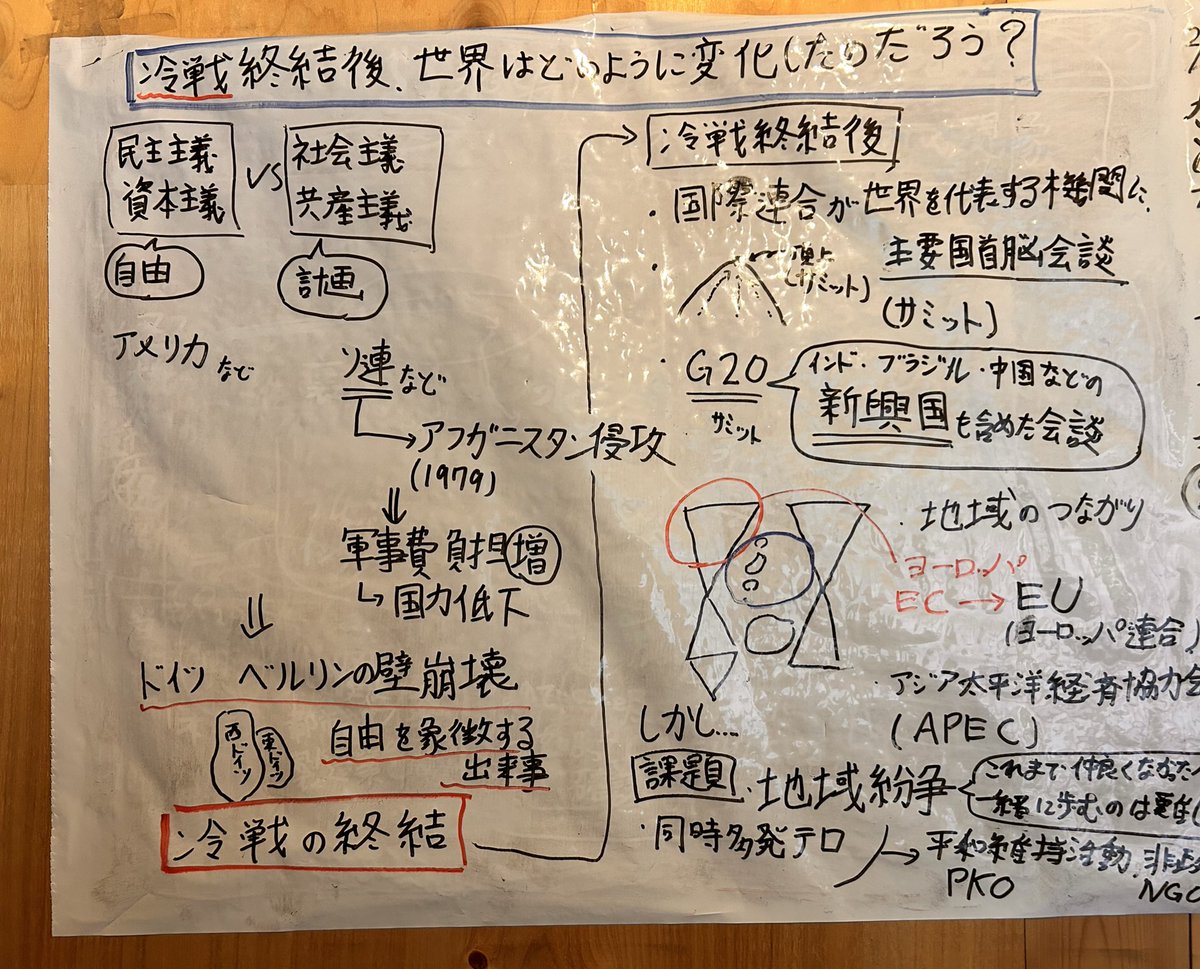 冷戦終結後、世界はどのように変化したのだろう？
民主主義
資本主義
VS
社会主義
共産主義
自由
計画
アメリカなど
ソ連など
アフガニスタン侵攻
(1979)
軍事費負担増
国力低下
ドイツ ベルリンの壁崩壊
西ドイツ
東ドイツ
自由を象徴する
出来事
冷戦の終結
冷戦終結後
・国際連合が世界を代表する機関に
・
頂上
(サミット)
主要国首脳会談
(サミット)
・G20
サミット
インド・ブラジル・中国などの
新興国も含めた会談
・地域のつながり
ヨーロッパ
EC→EU
(ヨーロッパ連合)
・アジア太平洋経済協力会
(APEC)
しかし…
課題
・地域紛争
これまで仲良くなかった
一緒に歩むのは難し
・同時多発テロ
→平和維持活動、非
PKO
NGO